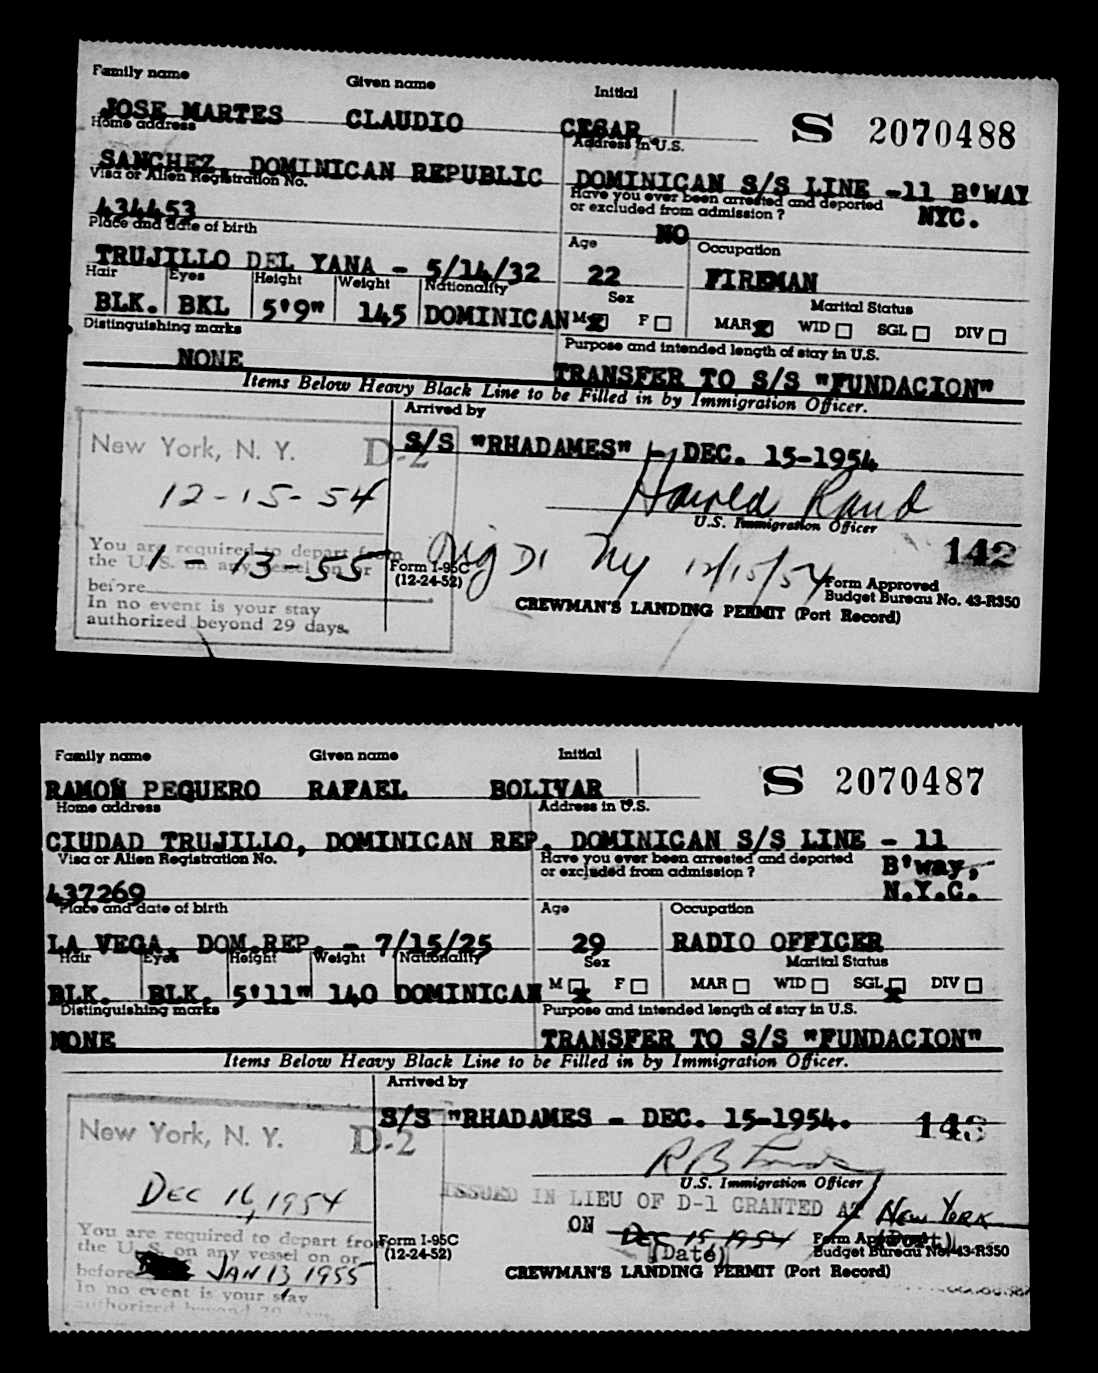 Family name Given name Initial
JOSE MARTES CLAUDIO CESAR S 2070488
Home address Address in U.S.
SANCHEZ, DOMINICAN REPUBLIC DOMINICAN S/S LINE -11 B'WAY
Visa or Alien Registration No. Have you ever been arrested and deported or excluded from admission? NYC.
434453 NO
Place and date of birth Age Occupation
TRUJILLO DEL YANA - 5/14/32 22 FIREMAN
Hair Eyes Height Weight Nationality Sex Marital Status
BLK. BKL 5'9" 145 DOMINICAN M X F MAR X WID SGL DIV
Distinguishing marks Purpose and intended length of stay in U.S.
NONE TRANSFER TO S/S "FUNDACION"
Items Below Heavy Black Line to be Filled in by Immigration Officer.
Arrived by
New York, N. Y. D-2 S/S "RHADAMES" - DEC. 15-1954
12-15-54 Harold Rand
U.S. Immigration Officer
142
You are required to depart from
the U.S. on any vessel on or
before 1-13-55
In no event is your stay
authorized beyond 29 days.
Form I-95C
(12-24-52)
Orig D1 NY 12/15/54
Form Approved
Budget Bureau No. 43-R350
CREWMAN'S LANDING PERMIT (Port Record)
Family name Given name Initial
RAMON PEQUERO RAFAEL BOLIVAR S 2070487
Home address Address in U.S.
CIUDAD TRUJILLO, DOMINICAN REP. DOMINICAN S/S LINE - 11
Visa or Alien Registration No. Have you ever been arrested and deported or excluded from admission? B'way,
437269 N.Y.C.
Place and date of birth Age Occupation
LA VEGA, DOM.REP. - 7/15/25 29 RADIO OFFICER
Hair Eyes Height Weight Nationality Sex Marital Status
BLK. BLK. 5'11" 140 DOMINICAN M X F MAR WID SGL X DIV
Distinguishing marks Purpose and intended length of stay in U.S.
NONE TRANSFER TO S/S "FUNDACION"
Items Below Heavy Black Line to be Filled in by Immigration Officer.
Arrived by
S/S "RHADAMES - DEC. 15-1954. 143
New York, N. Y. D-2
U.S. Immigration Officer
DEC 16, 1954 ISSUED IN LIEU OF D-1 GRANTED AT New York
ON DEC 15, 1954 (Port)
(Date)
You are required to depart from
the U.S. on any vessel on or
before JAN 13 1955
In no event is your stay
authorized beyond 29 days
Form I-95C
(12-24-52)
Form Approved
Budget Bureau No. 43-R350
CREWMAN'S LANDING PERMIT (Port Record)